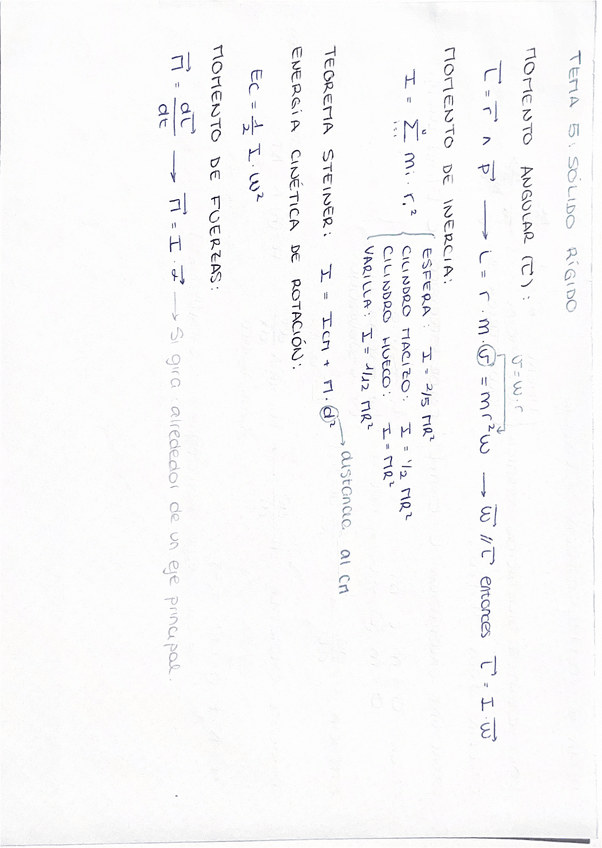 TEMA 5: SÓLIDO RÍGIDO
MOMENTO ANGULAR (L⃗):
v = w·r
L⃗ = r⃗ ∧ p⃗ → L = r·m·v = mr²w → w⃗ // L⃗ entonces L⃗ = I·w⃗
MOMENTO DE INERCIA:
I = Σ mi·ri²
ESFERA: I = 2/5 MR²
CILINDRO MACIZO: I = 1/2 MR²
CILINDRO HUECO: I = MR²
VARILLA: I = 1/12 MR²
TEOREMA STEINER: I = ICM + M·d² → distancia al CM
ENERGÍA CINÉTICA DE ROTACIÓN:
Ec = 1/2 I·w²
MOMENTO DE FUERZAS:
M⃗ = dL⃗/dt → M⃗ = I·α⃗ → Si gira alrededor de un eje principal.